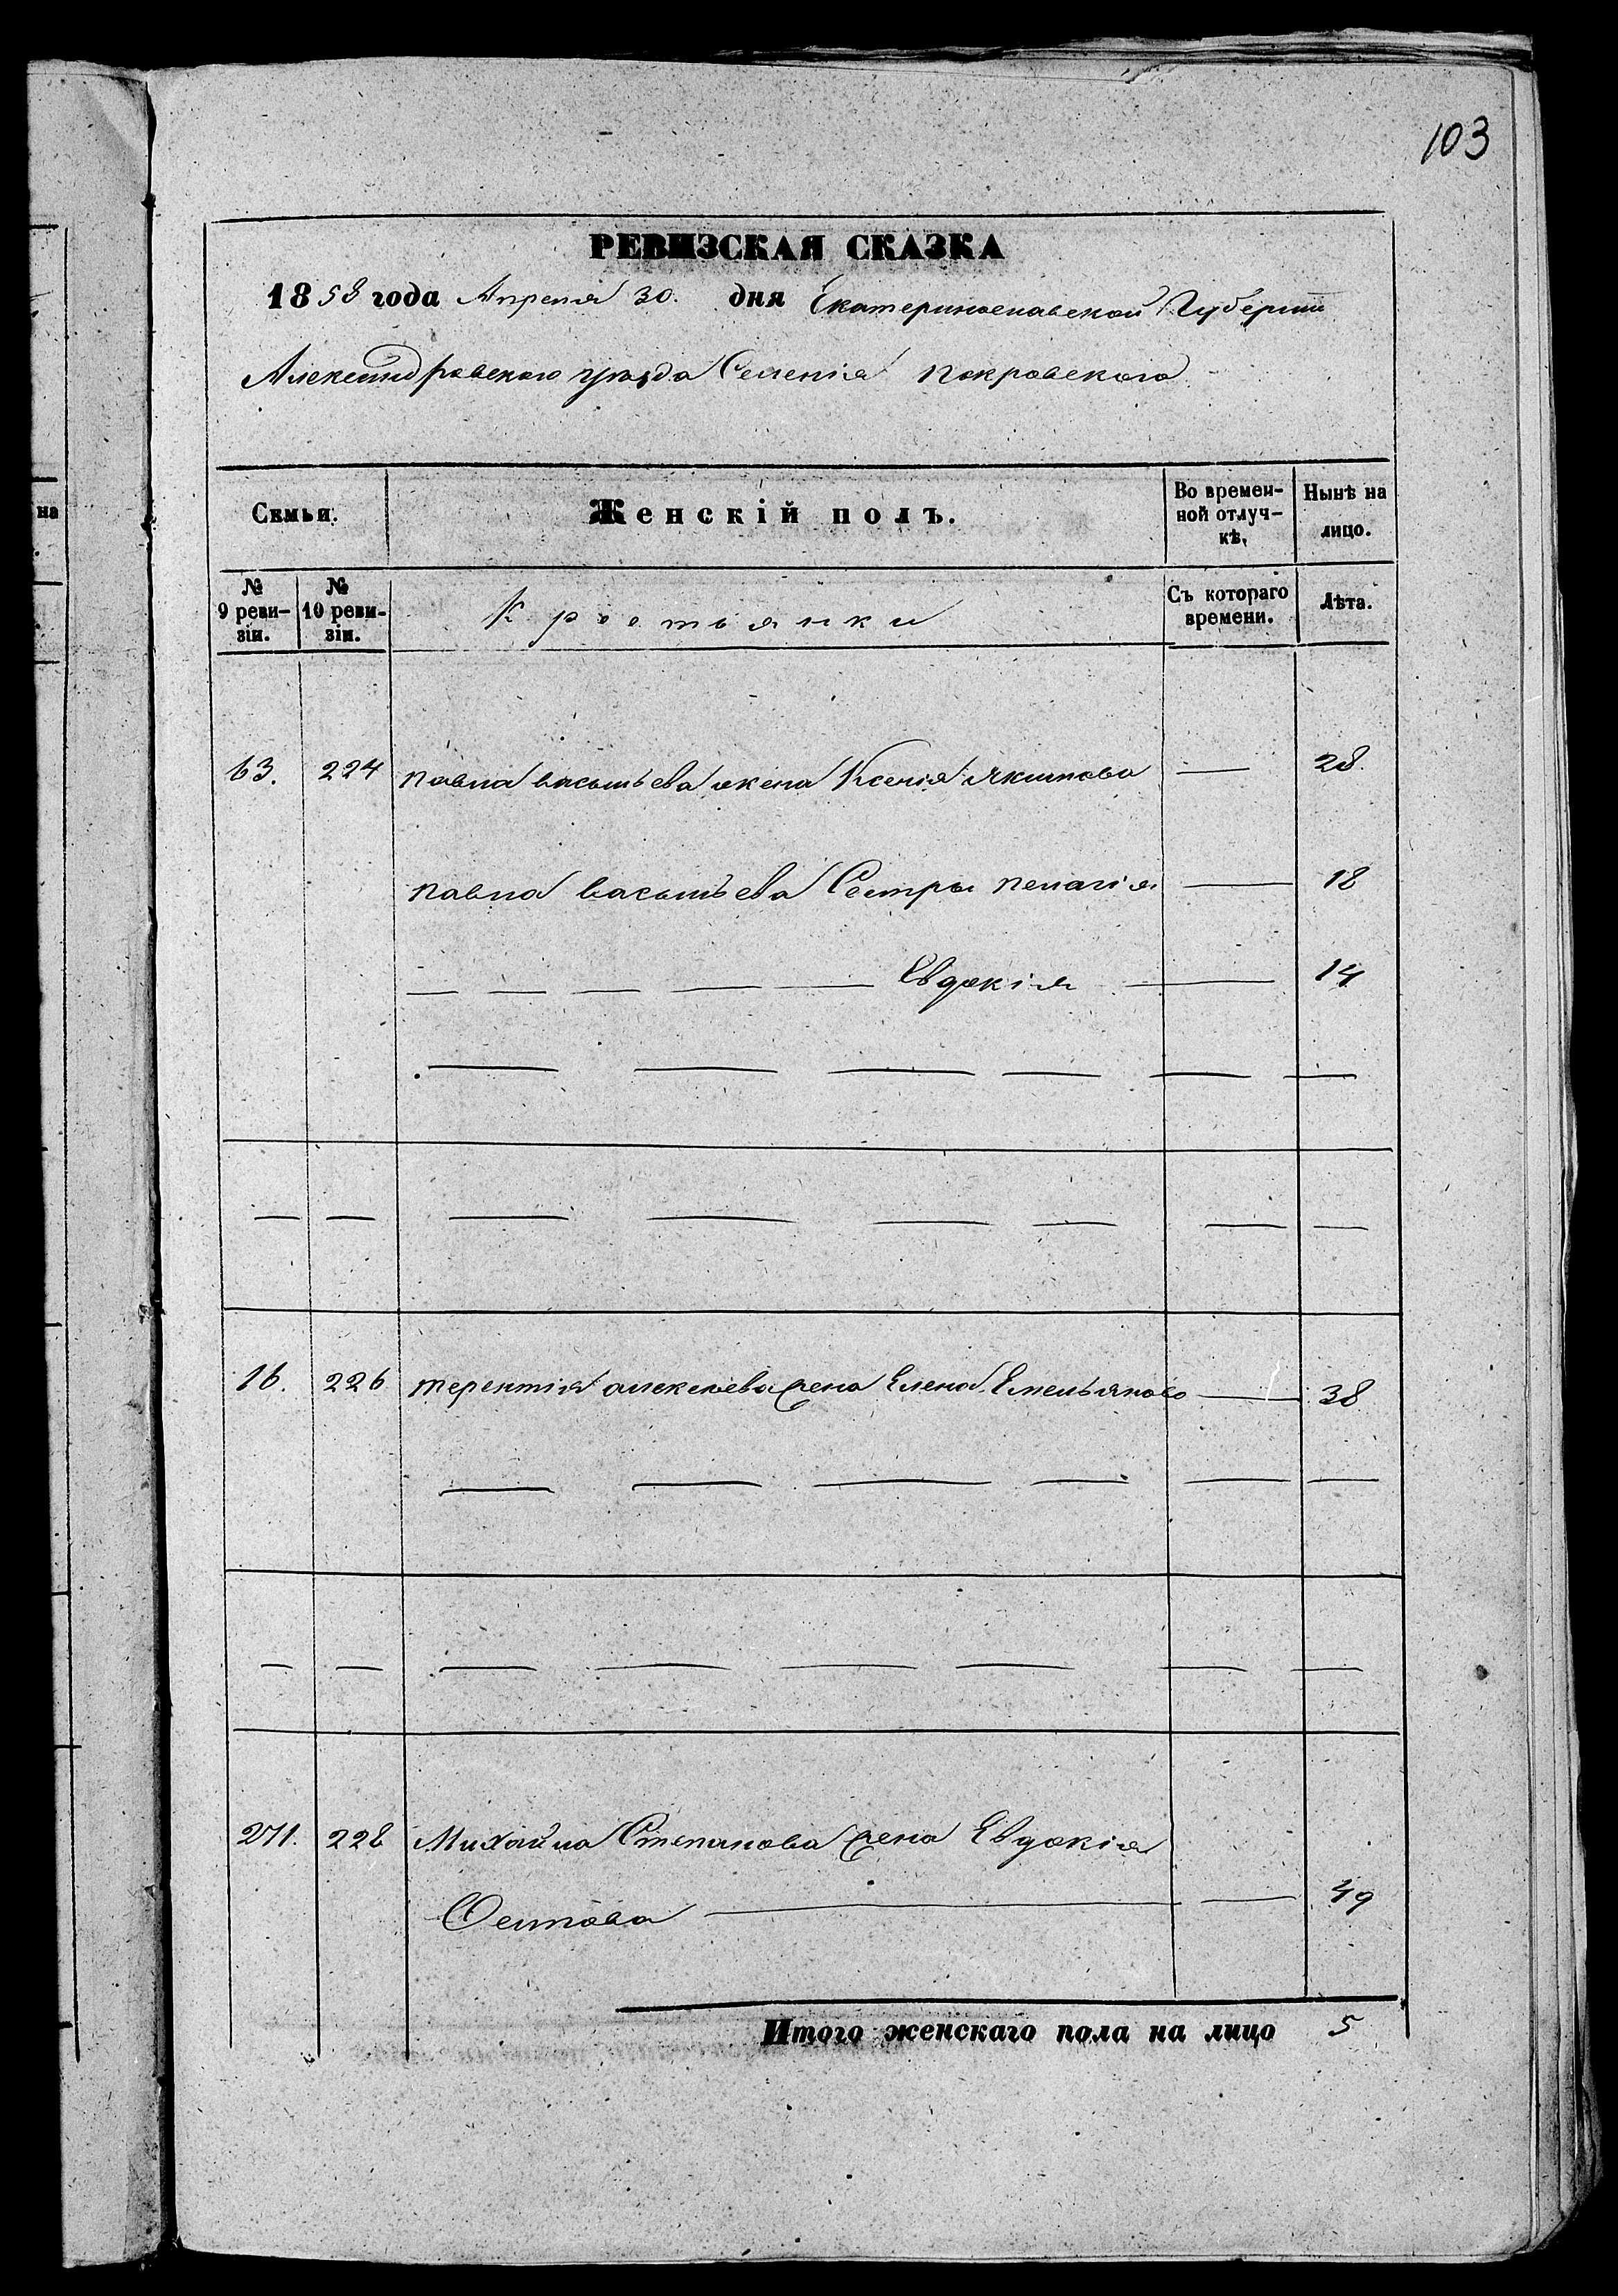 103
на
РЕВИЗСКАЯ СКАЗКА
1858 года Апреля 30. дня Екатеринославской Губернии
Александровского уезда Селенія покровского
Семьи. Женскій полъ. Во времен- Нынѣ на
ной отлуч- лицо.
кѣ.
№ № Съ котораго Лѣта.
9 реви- 10 реви- Крестьянки времени.
зіи. зіи.
63. 224 павла васильева жена Ксенія Якимова — 28.
павла васильева Сестры пелагія — 18
— — — — — Евдокія — 14
— — — — — —
— — — — — — — —
16. 226 терентія алексеева жена Елена Емельянова — 38
— — — — — —
— — — — — — — —
271. 228 Михайла Степанова жена Евдокія
— — 49
Итого женскаго пола на лицо 5